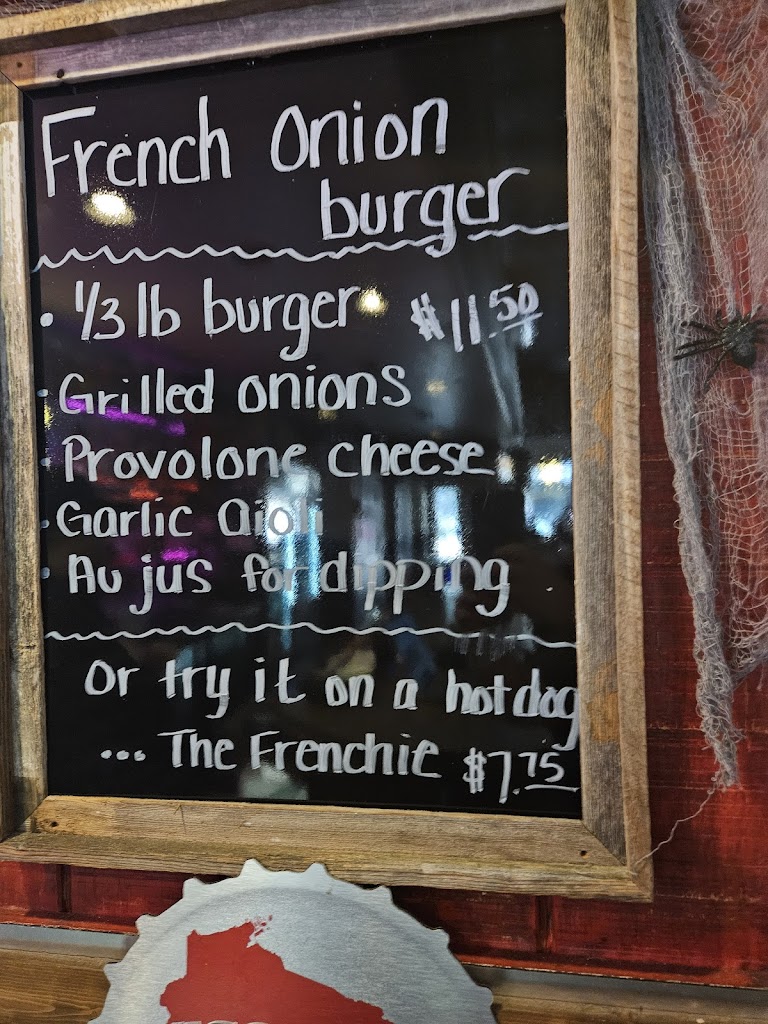 French Onion
burger
• 1/3 lb burger $11.50
• Grilled onions
• Provolone cheese
• Garlic Aioli
• Au jus for dipping
Or try it on a hotdog
... The Frenchie $7.75